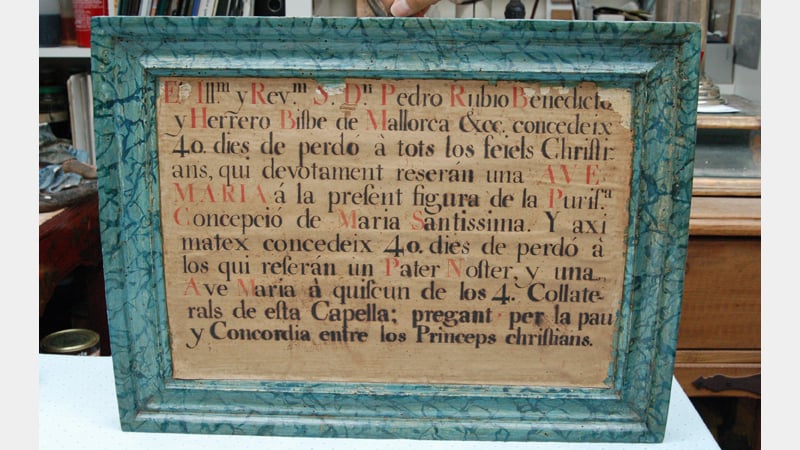 El Ill.ᵐ y Rev.ᵐ S. D.ⁿ Pedro Rubio Benedicto
y Herrero Bisbe de Mallorca &cc. concedeix
40. dies de perdó à tots los feiels Christi-
ans, qui devotament reserán una AVE
MARIA á la presſent figura de la Puriſ.ᵃ
Concepció de Maria Santissima. Y axi
matex concedeix 40. dies de perdó à
los qui reſerán un Pater Noſter, y una
Ave Maria à quiſcun de los 4. Collate-
rals de eſta Capella; pregant per la pau
y Concordia entre los Princeps chriſtians.